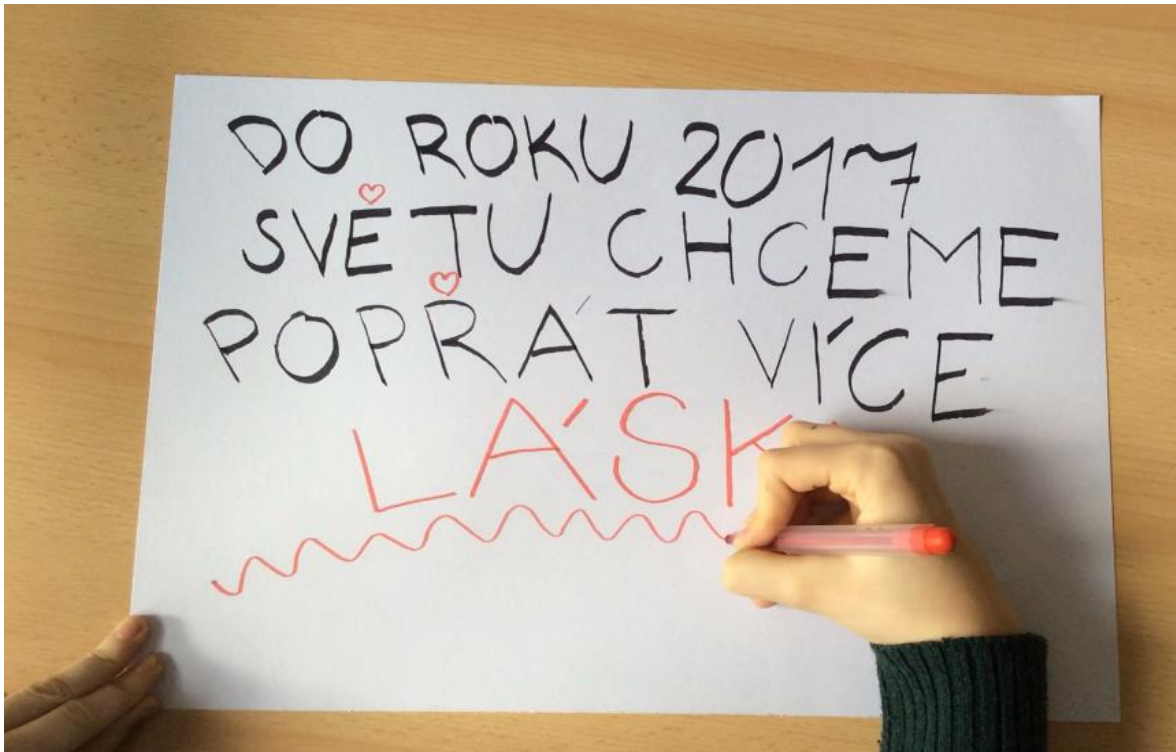 DO ROKU 2017
SVĚTU CHCEME
POPŘÁT VÍCE